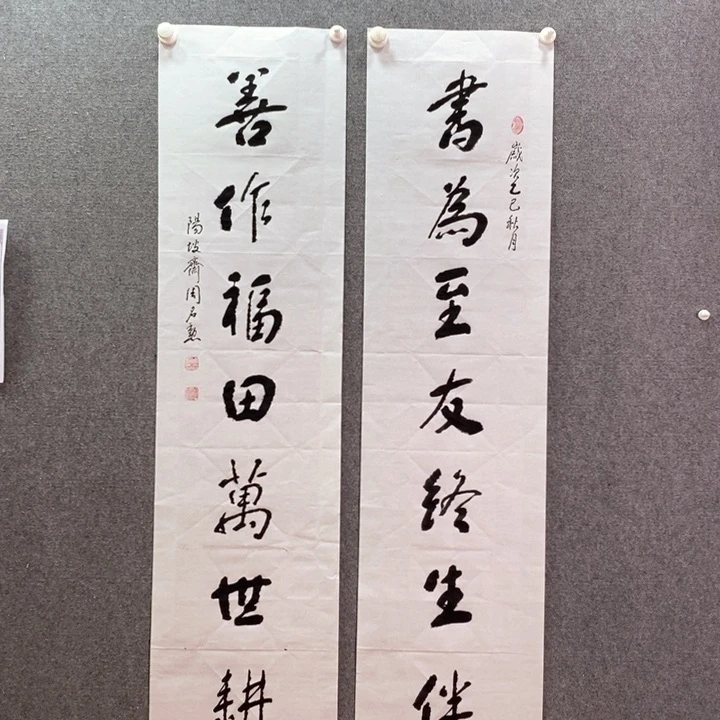 書為至友終生伴
歲次乙巳秋月
善作福田萬世耕
陽坡齋周名勲